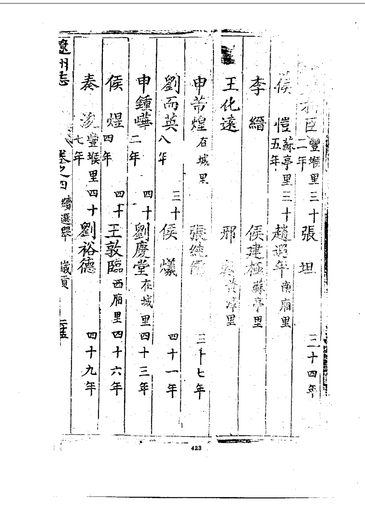 臣 豐堠里三十二年 張坦 三十四年
侯愷 蘇亭里三十五年 趙過年 南廂里
李縉 侯建極 蘇亭里
王化遠 邢 里
申芾煌 石城里 張繼 三十七年
劉而英 三十八年 侯爔 四十一年
申鍾嶧 四十二年 劉慶堂 在城里四十三年
侯煜 四十四年 王敦臨 西廂里四十六年
秦浚 豐堠里四十七年 劉裕德 四十九年
遼州志 卷之四 續選舉 歲貢
423